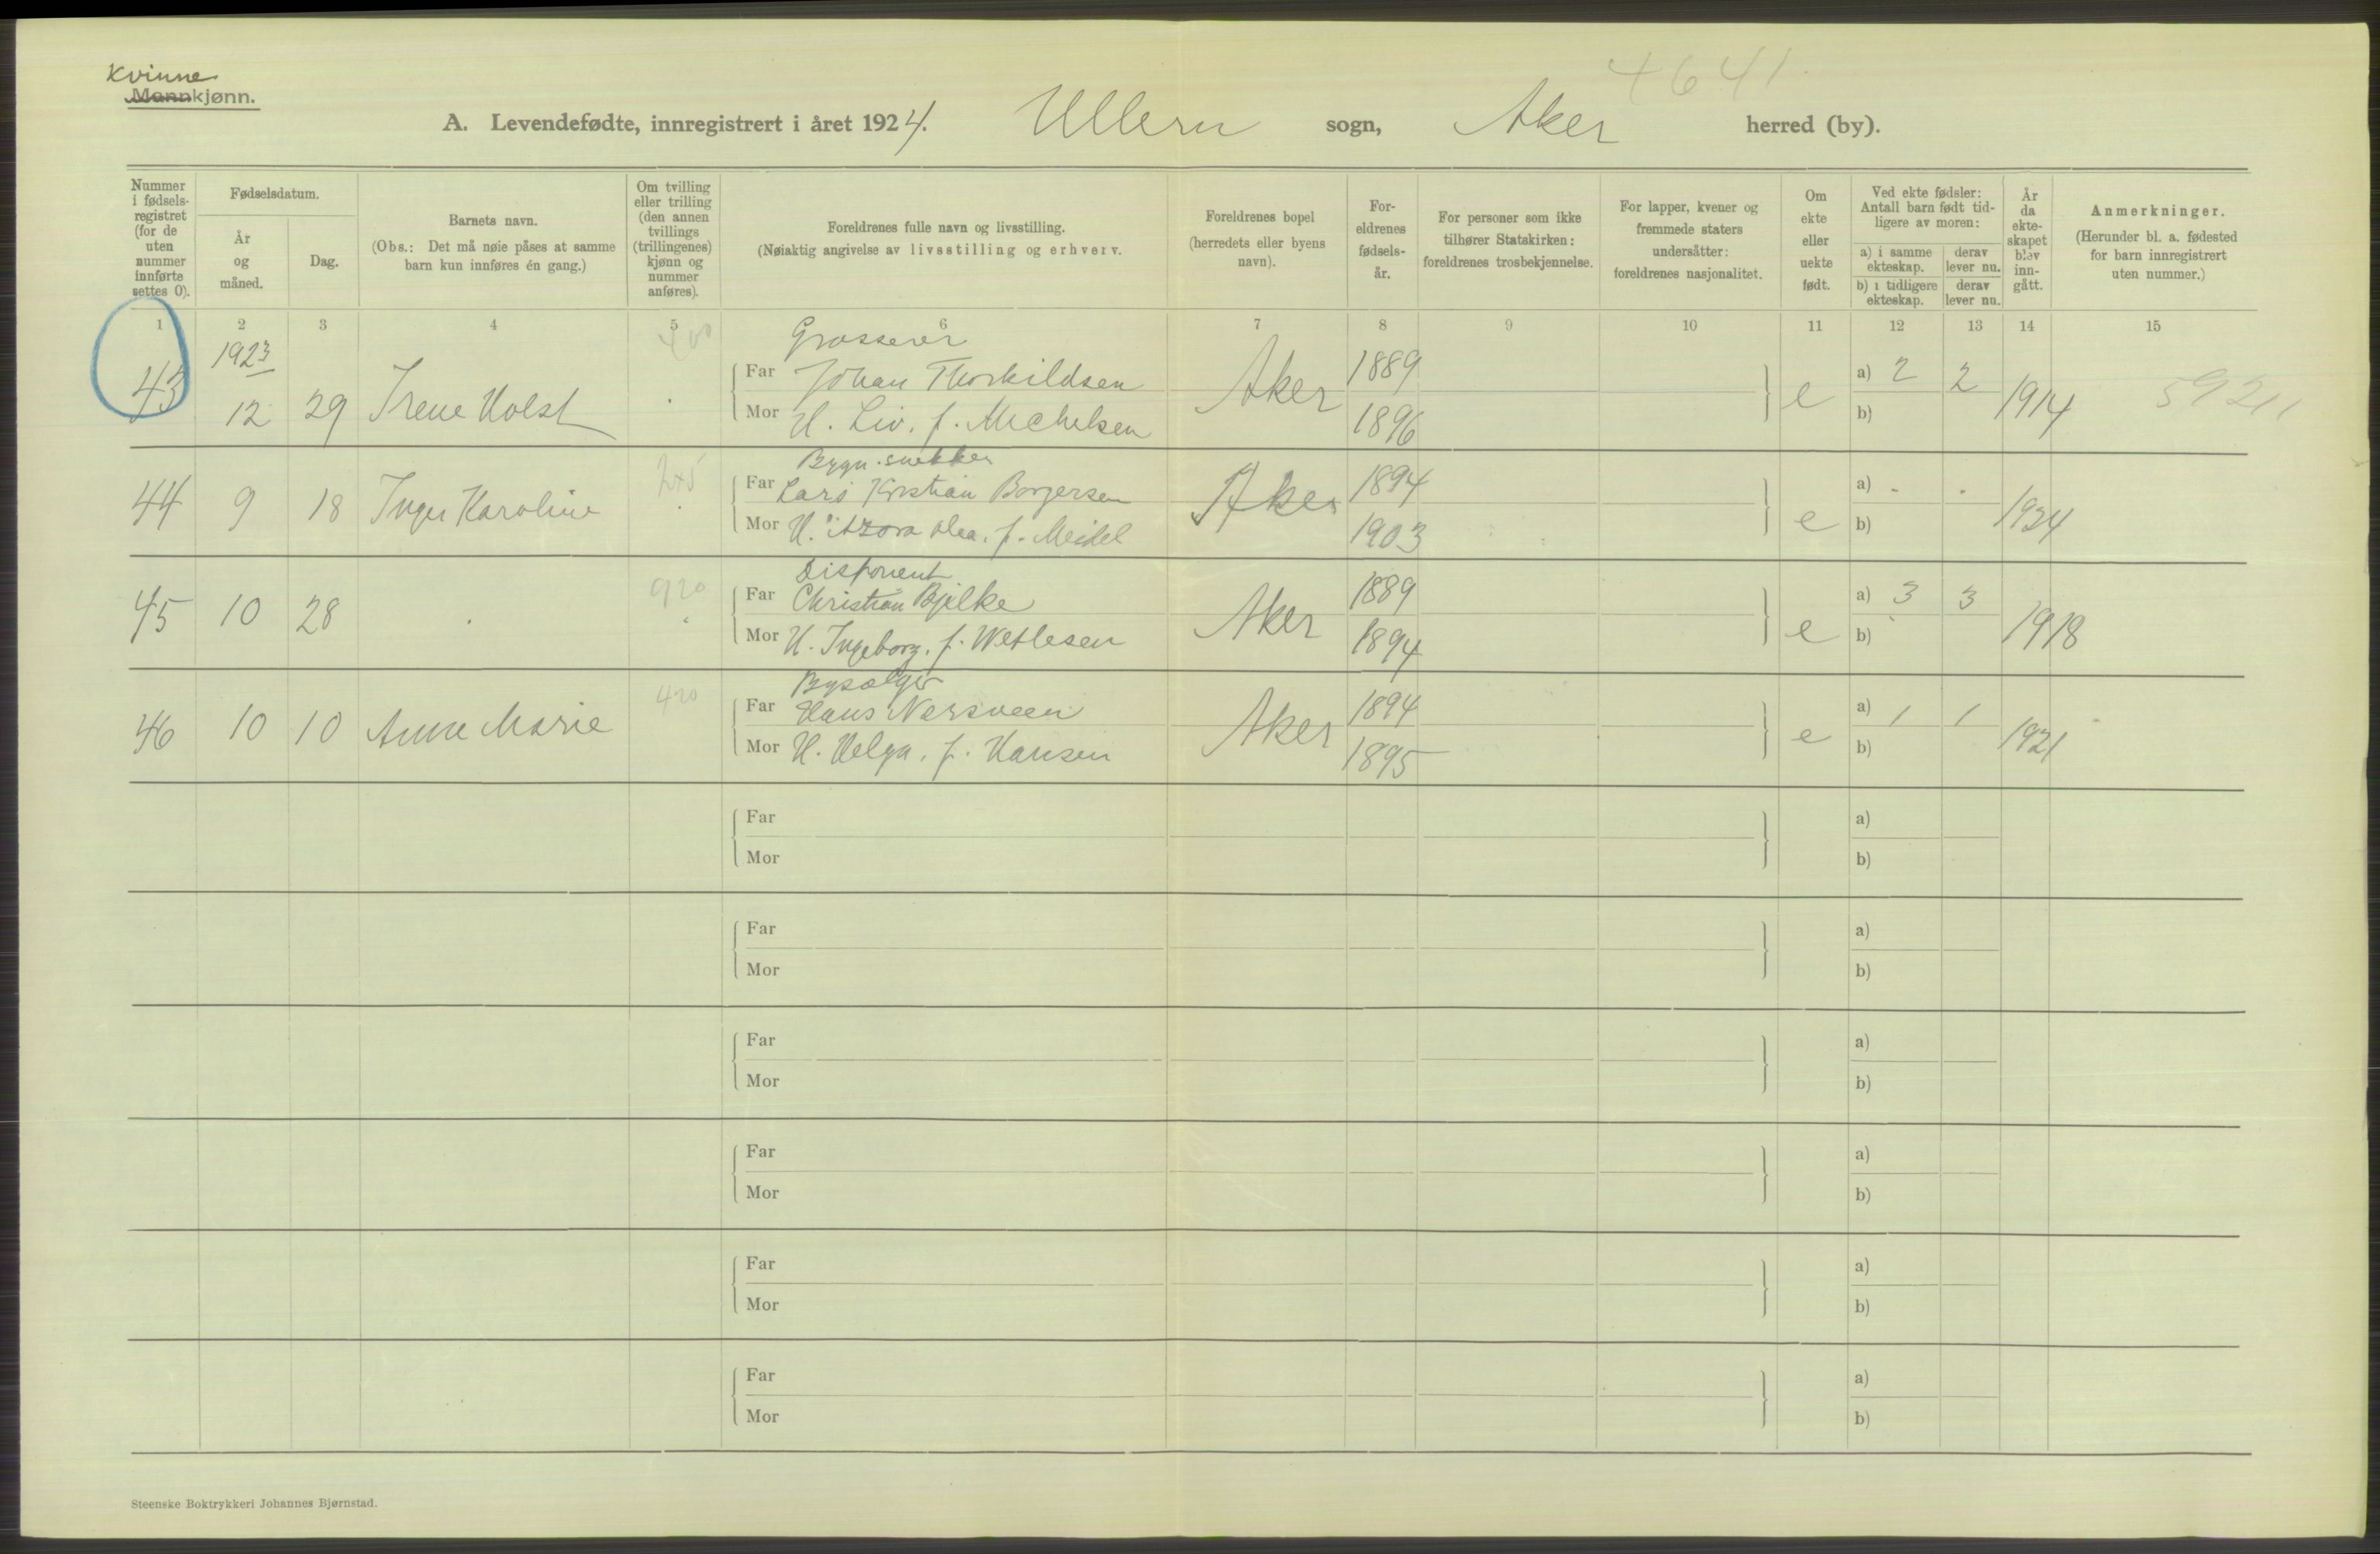 Kvinne
Mannkjønn.
4641.
A. Levendefødte, innregistrert i året 1924. Ullern sogn, Aker herred (by).
Nummer i fødsels-registret (for de uten nummer innførte settes 0).
Fødselsdatum.
År og måned.
Dag.
Barnets navn.
(Obs.: Det må nøie påses at samme barn kun innføres én gang.)
Om tvilling eller trilling (den annen tvillings (trillingenes) kjønn og nummer anføres).
Foreldrenes fulle navn og livsstilling.
(Nøiaktig angivelse av livsstilling og erhverv.
Foreldrenes bopel (herredets eller byens navn).
For-eldrenes fødsels-år.
For personer som ikke tilhører Statskirken: foreldrenes trosbekjennelse.
For lapper, kvener og fremmede staters undersåtter: foreldrenes nasjonalitet.
Om ekte eller uekte født.
Ved ekte fødsler: Antall barn født tid-ligere av moren:
a) i samme ekteskap.
derav lever nu.
b) i tidligere ekteskap.
derav lever nu.
År da ekte-skapet blev inn-gått.
Anmerkninger.
(Herunder bl. a. fødested for barn innregistrert uten nummer.)
1 2 3 4 5 6 7 8 9 10 11 12 13 14 15
1923 400 Grosserer
Far Johan Thorkildsen 1889 a) 2 2
43 12 29 Irene Holst Aker e 1914
Mor H. Liv. f. Michelsen 1896 b)
Bygn.snekker
Far Lars Kristian Borgersen 1894 a) - -
44 9 18 Inger Karoline Aker e 1924
Mor H. f. Meidel 1903 b)
920 Disponent
Far Christian Bjelke 1889 a) 3 3
45 10 28 Aker e 1918
Mor H. Ingeborg. f. Wetlesen 1894 b)
420
Far Hans Nersveen 1894 a) 1 1
46 10 10 Anne Marie Aker e 1921
Mor H. Helga. f. Hansen 1895 b)
Far a)
Mor b)
Far a)
Mor b)
Far a)
Mor b)
Far a)
Mor b)
Far a)
Mor b)
Far a)
Mor b)
Steenske Boktrykkeri Johannes Bjørnstad.